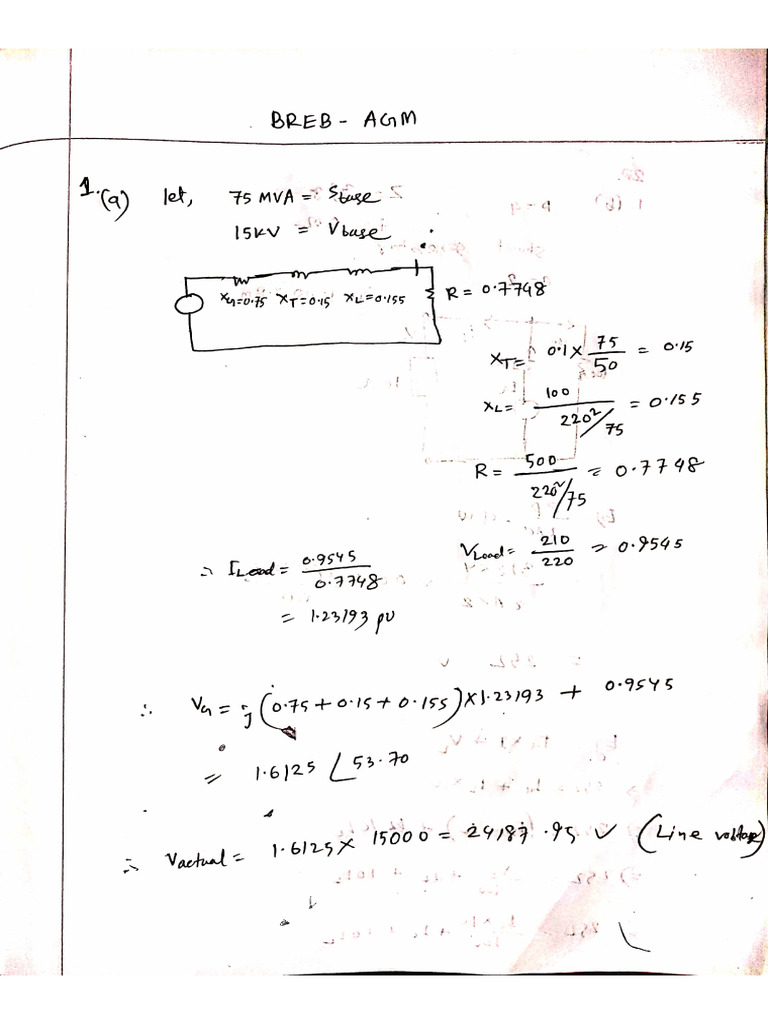 BREB - AGM
1.(a) let, 75 MVA = Sbase
15KV = Vbase
XG=0.75 XT=0.15 XL=0.155 R = 0.7748
XT = 0.1 × 75/50 = 0.15
XL = 100 / 220²/75 = 0.155
R = 500 / 220²/75 = 0.7748
VLoad = 210/220 = 0.9545
∴ ILoad = 0.9545 / 0.7748
= 1.23193 pu
∴ VG = j(0.75+0.15+0.155)×1.23193 + 0.9545
= 1.6125 ∠53.70
∴ Vactual = 1.6125 × 15000 = 24187.95 V (Line voltage)